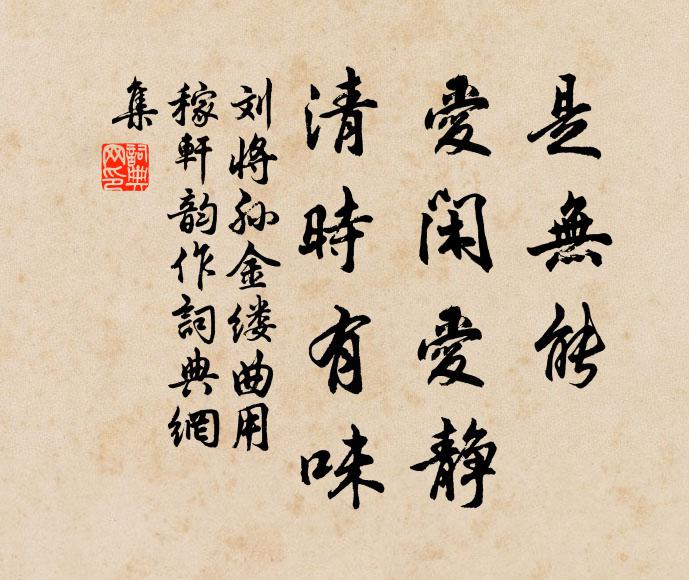 是無能
愛閑愛静
清時有味
刘將孙金缕曲用
稼軒韵作詞典網
集
詞典網印